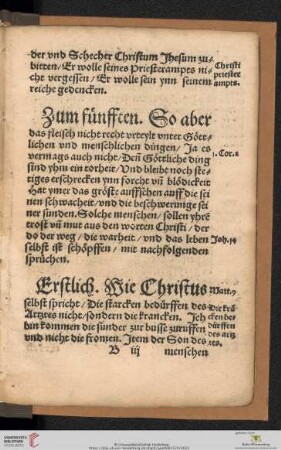 der vnd Schecher Christum Jhesum zu-
bitten/ Er wolle seines Priesterampts ni-
cht vergessen/ Er wolle sein ynn seinem
reiche gedencken.
Christi
priester
ampts.
Zum fünfften. So aber
das fleisch nicht recht vrteylt vnter Gött-
lichen vnd menschlichen dingen/ Ja es
vermags auch nicht/ Deñ Göttliche ding
sind yhm ein torheit/ Vnd bleibt noch ste-
tiges erschrecken ynn forcht vñ blödickeit
Hat ymer das gröste auffsehen auff die sei
nen schwacheit/ vnd die beschwerunge sei
ner sunden. Solche menschen/ sollen yhrẽ
trost vñ mut aus den worten Christi/ der
do der weg/ die warheit/ vnd das leben
selbst ist schöpffen/ mit nachfolgenden
sprüchen.
1. Cor.
Joh. 14
Erstlich. Wie Christus
selbst spricht/ Die starcken bedürffen des
Artztes nicht/ sondern die krancken. Ich
bin kommen die sunder zur busse zuruffen
vnd nicht die fromen. Item der Son des
Matt. 9
Die krã
cken be
dürffen
des artz
tes.
B iij menschen
UNIVERSITÄTS-
BIBLIOTHEK
HEIDELBERG
© Universitätsbibliothek Heidelberg
Baden-Württemberg